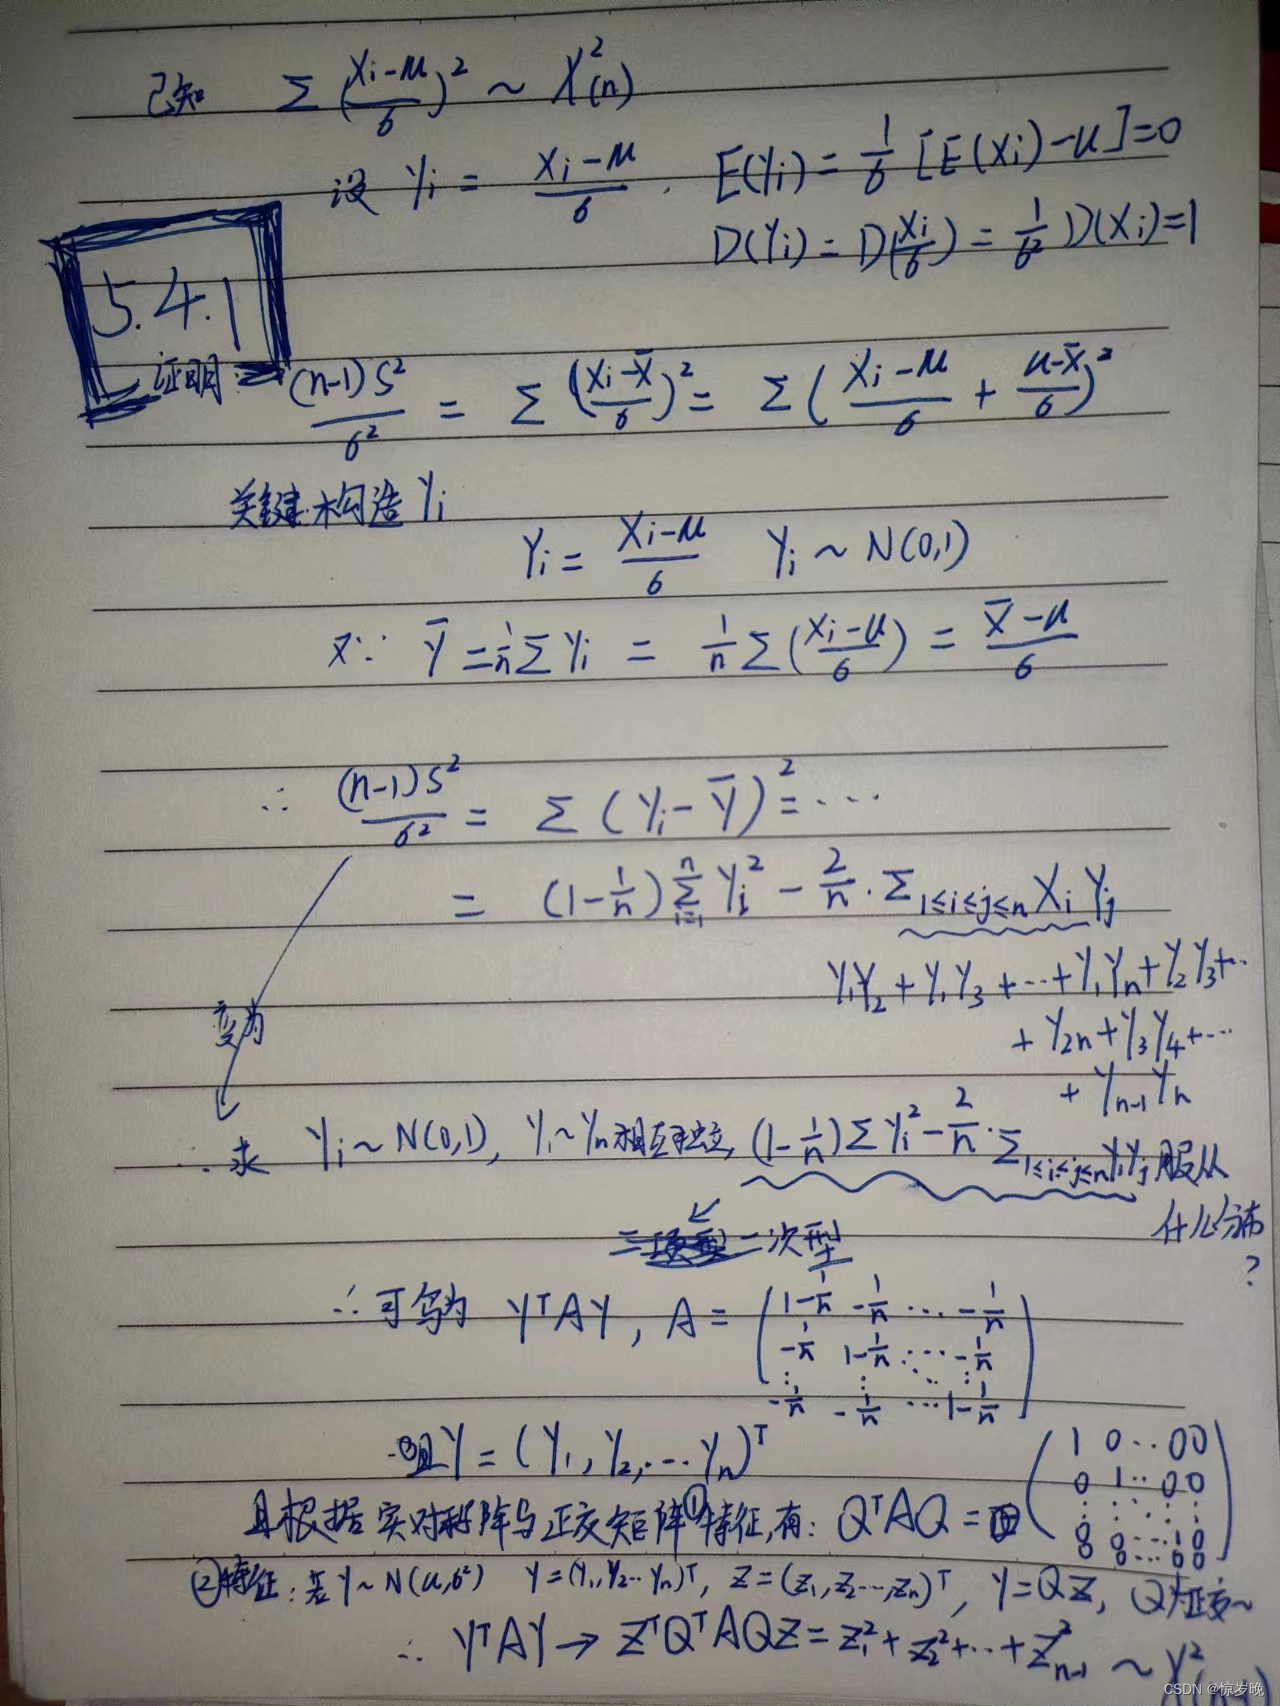 已知 Σ(Xi-μ/б)² ~ X²(n)
设 Yi = Xi-μ/б . E(Yi) = 1/б [E(Xi)-u]=0
D(Yi) = D(Xi/б) = 1/б² D(Xi)=1
5.4.1
证明: (n-1)S²/б² = Σ(Xi-X̄/б)² = Σ(Xi-μ/б + u-X̄/б)²
关键:构造Yi
Yi = Xi-μ/б Yi ~ N(0,1)
又∵ Ȳ = 1/n ΣYi = 1/n Σ(Xi-u/б) = X̄-u/б
∴ (n-1)S²/б² = Σ(Yi-Ȳ)² = ...
= (1-1/n) Σ_{i=1}^{n} Yi² - 2/n · Σ_{1≤i≤j≤n} Xi Yj
Y1Y2 + Y1Y3 + ... + Y1Yn + Y2Y3 + ..
+ Y2n + Y3Y4 + ...
+ Yn-1Yn
变为
∴ 求 Yi ~ N(0,1), Y1~Yn相互独立, (1-1/n)ΣYi² - 2/n · Σ_{1≤i≤j≤n} YiYj 服从
什么分布
?
二次型
∴ 可写为 YᵀAY, A = (1-1/n -1/n ... -1/n
-1/n 1-1/n ... -1/n
⋮ ⋮ ⋱ ⋮
-1/n -1/n ... 1-1/n)
且Y = (Y1, Y2, ... Yn)ᵀ
且根据实对称阵与正交矩阵①特征,有: QᵀAQ = (1 0 ... 0 0
0 1 .. 0 0
⋮ ⋮ ⋮ ⋮
0 0 ... 1 0
0 0 ... 0 0)
②特征: 若Y~N(u,б²) Y=(Y1,Y2...Yn)ᵀ, Z=(Z1,Z2...,Zn)ᵀ, Y=QZ, Q为正交~
∴ YᵀAY → ZᵀQᵀAQZ = Z1² + Z2² + ... + Zn-1² ~ X²
CSDN @惊岁晚